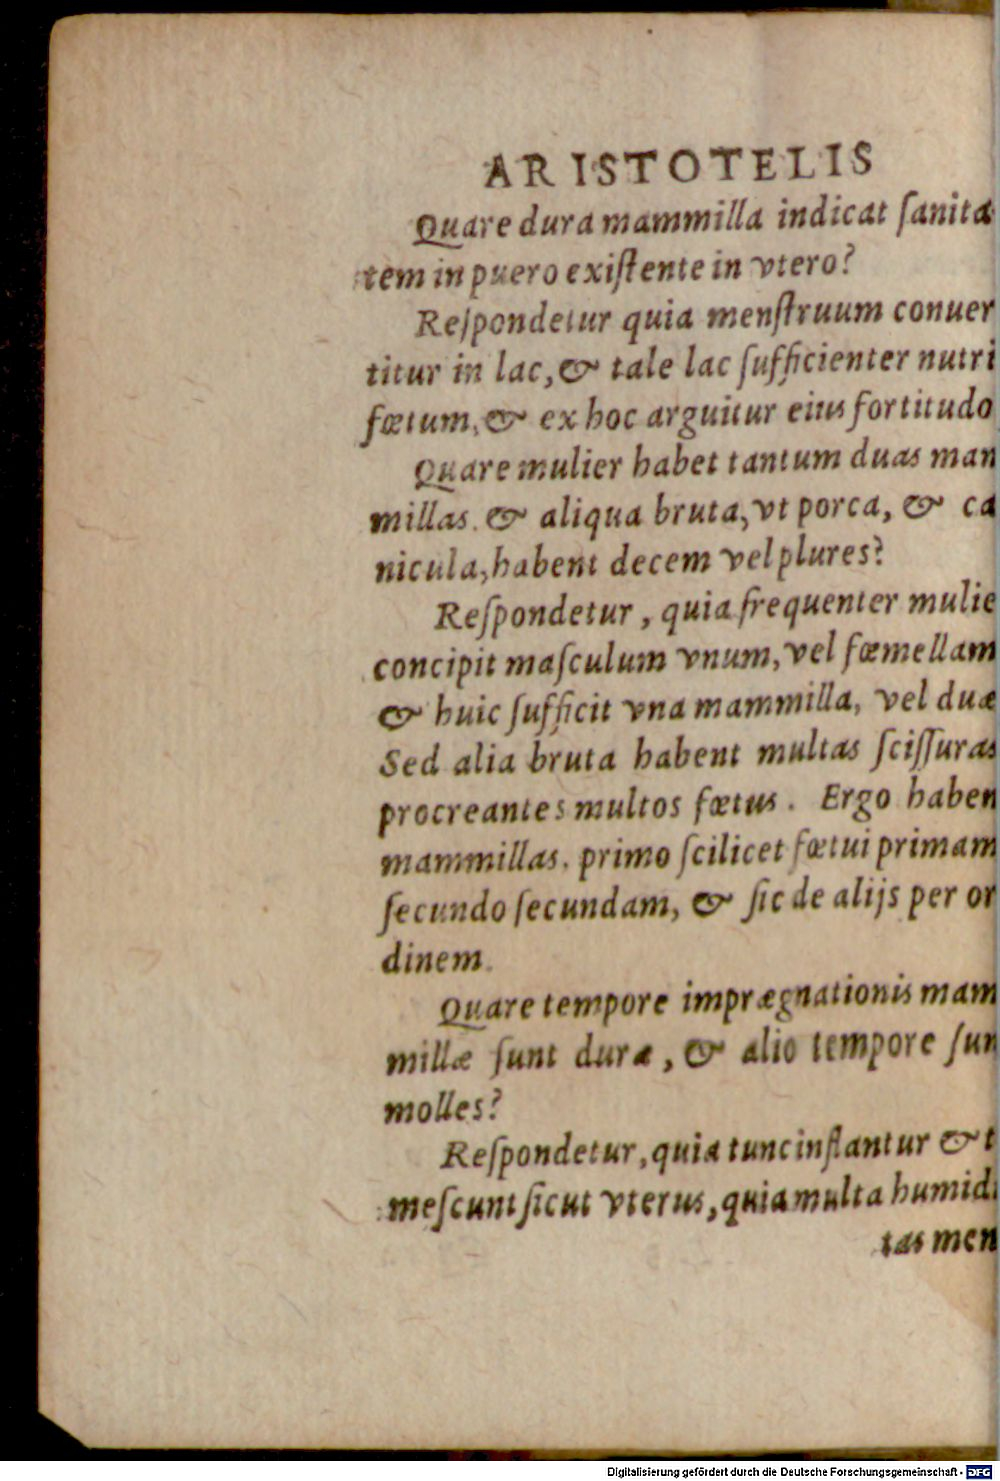 ARISTOTELIS
Quare dura mammilla indicat ſanita
tem in puero exiſtente in vtero?
Reſpondetur quia menſtruum conuer
titur in lac, & tale lac ſufficienter nutri
fœtum, & ex hoc arguitur eius fortitudo
Quare mulier habet tantum duas man
millas. & aliqua bruta, vt porca, & ca
nicula, habent decem vel plures?
Reſpondetur, quia frequenter mulie
concipit maſculum vnum, vel fœmellam
& huic ſufficit vna mammilla, vel duæ
Sed alia bruta habent multas ſciſſuras
procreantes multos fœtus. Ergo haben
mammillas, primo ſcilicet fœtui primam
ſecundo ſecundam, & ſic de alijs per or
dinem.
Quare tempore imprægnationis mam
millæ ſunt duræ, & alio tempore ſun
molles?
Reſpondetur, quia tunc inflantur & t
meſcunt ſicut vterus, quia multa humidi
tas men
Digitalisierung gefördert durch die Deutsche Forschungsgemeinschaft - DFG